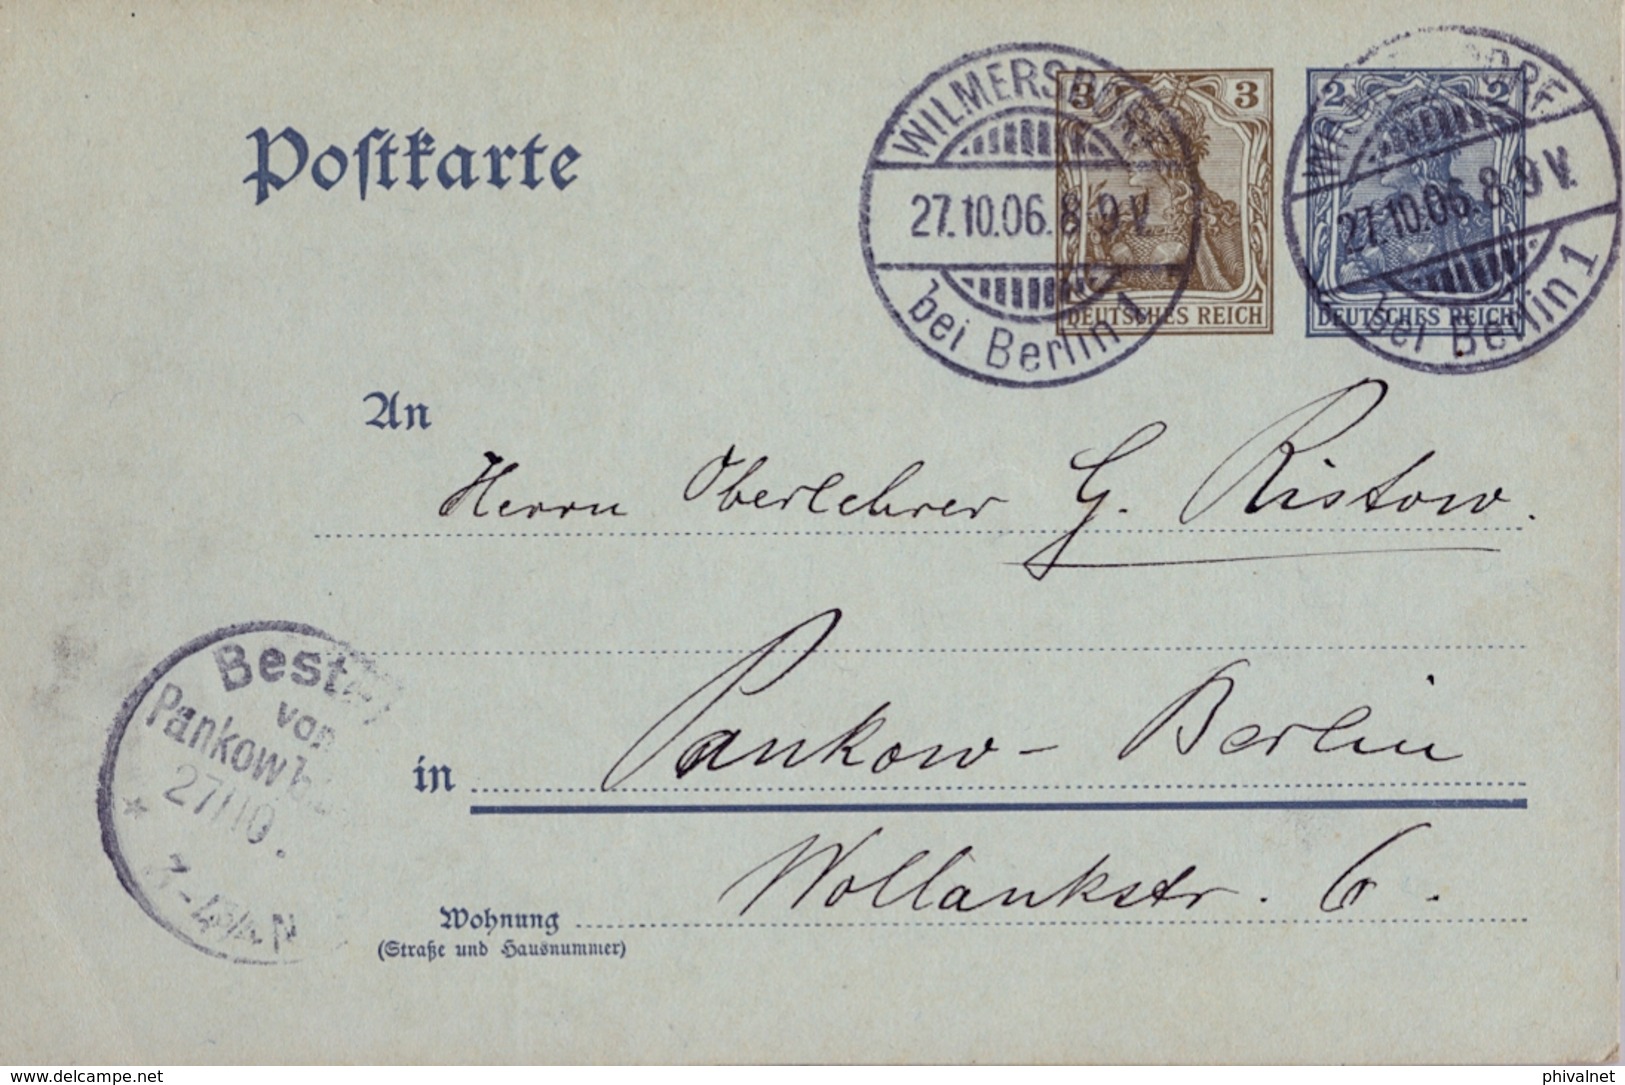 Postkarte
WILMERSDORF
27.10.06.8-9V.
bei Berlin 1
3 3
DEUTSCHES REICH
2 2
DEUTSCHES REICH
27.10.06.8-9V.
bei Berlin 1
An
Herrn Oberlehrer G. Ristow.
Best
von
Pankow b.
27/10.
in Pankow - Berlin
Wollankstr. 6.
Wohnung
(Straße und Hausnummer)
delcampe.net
phivalnet